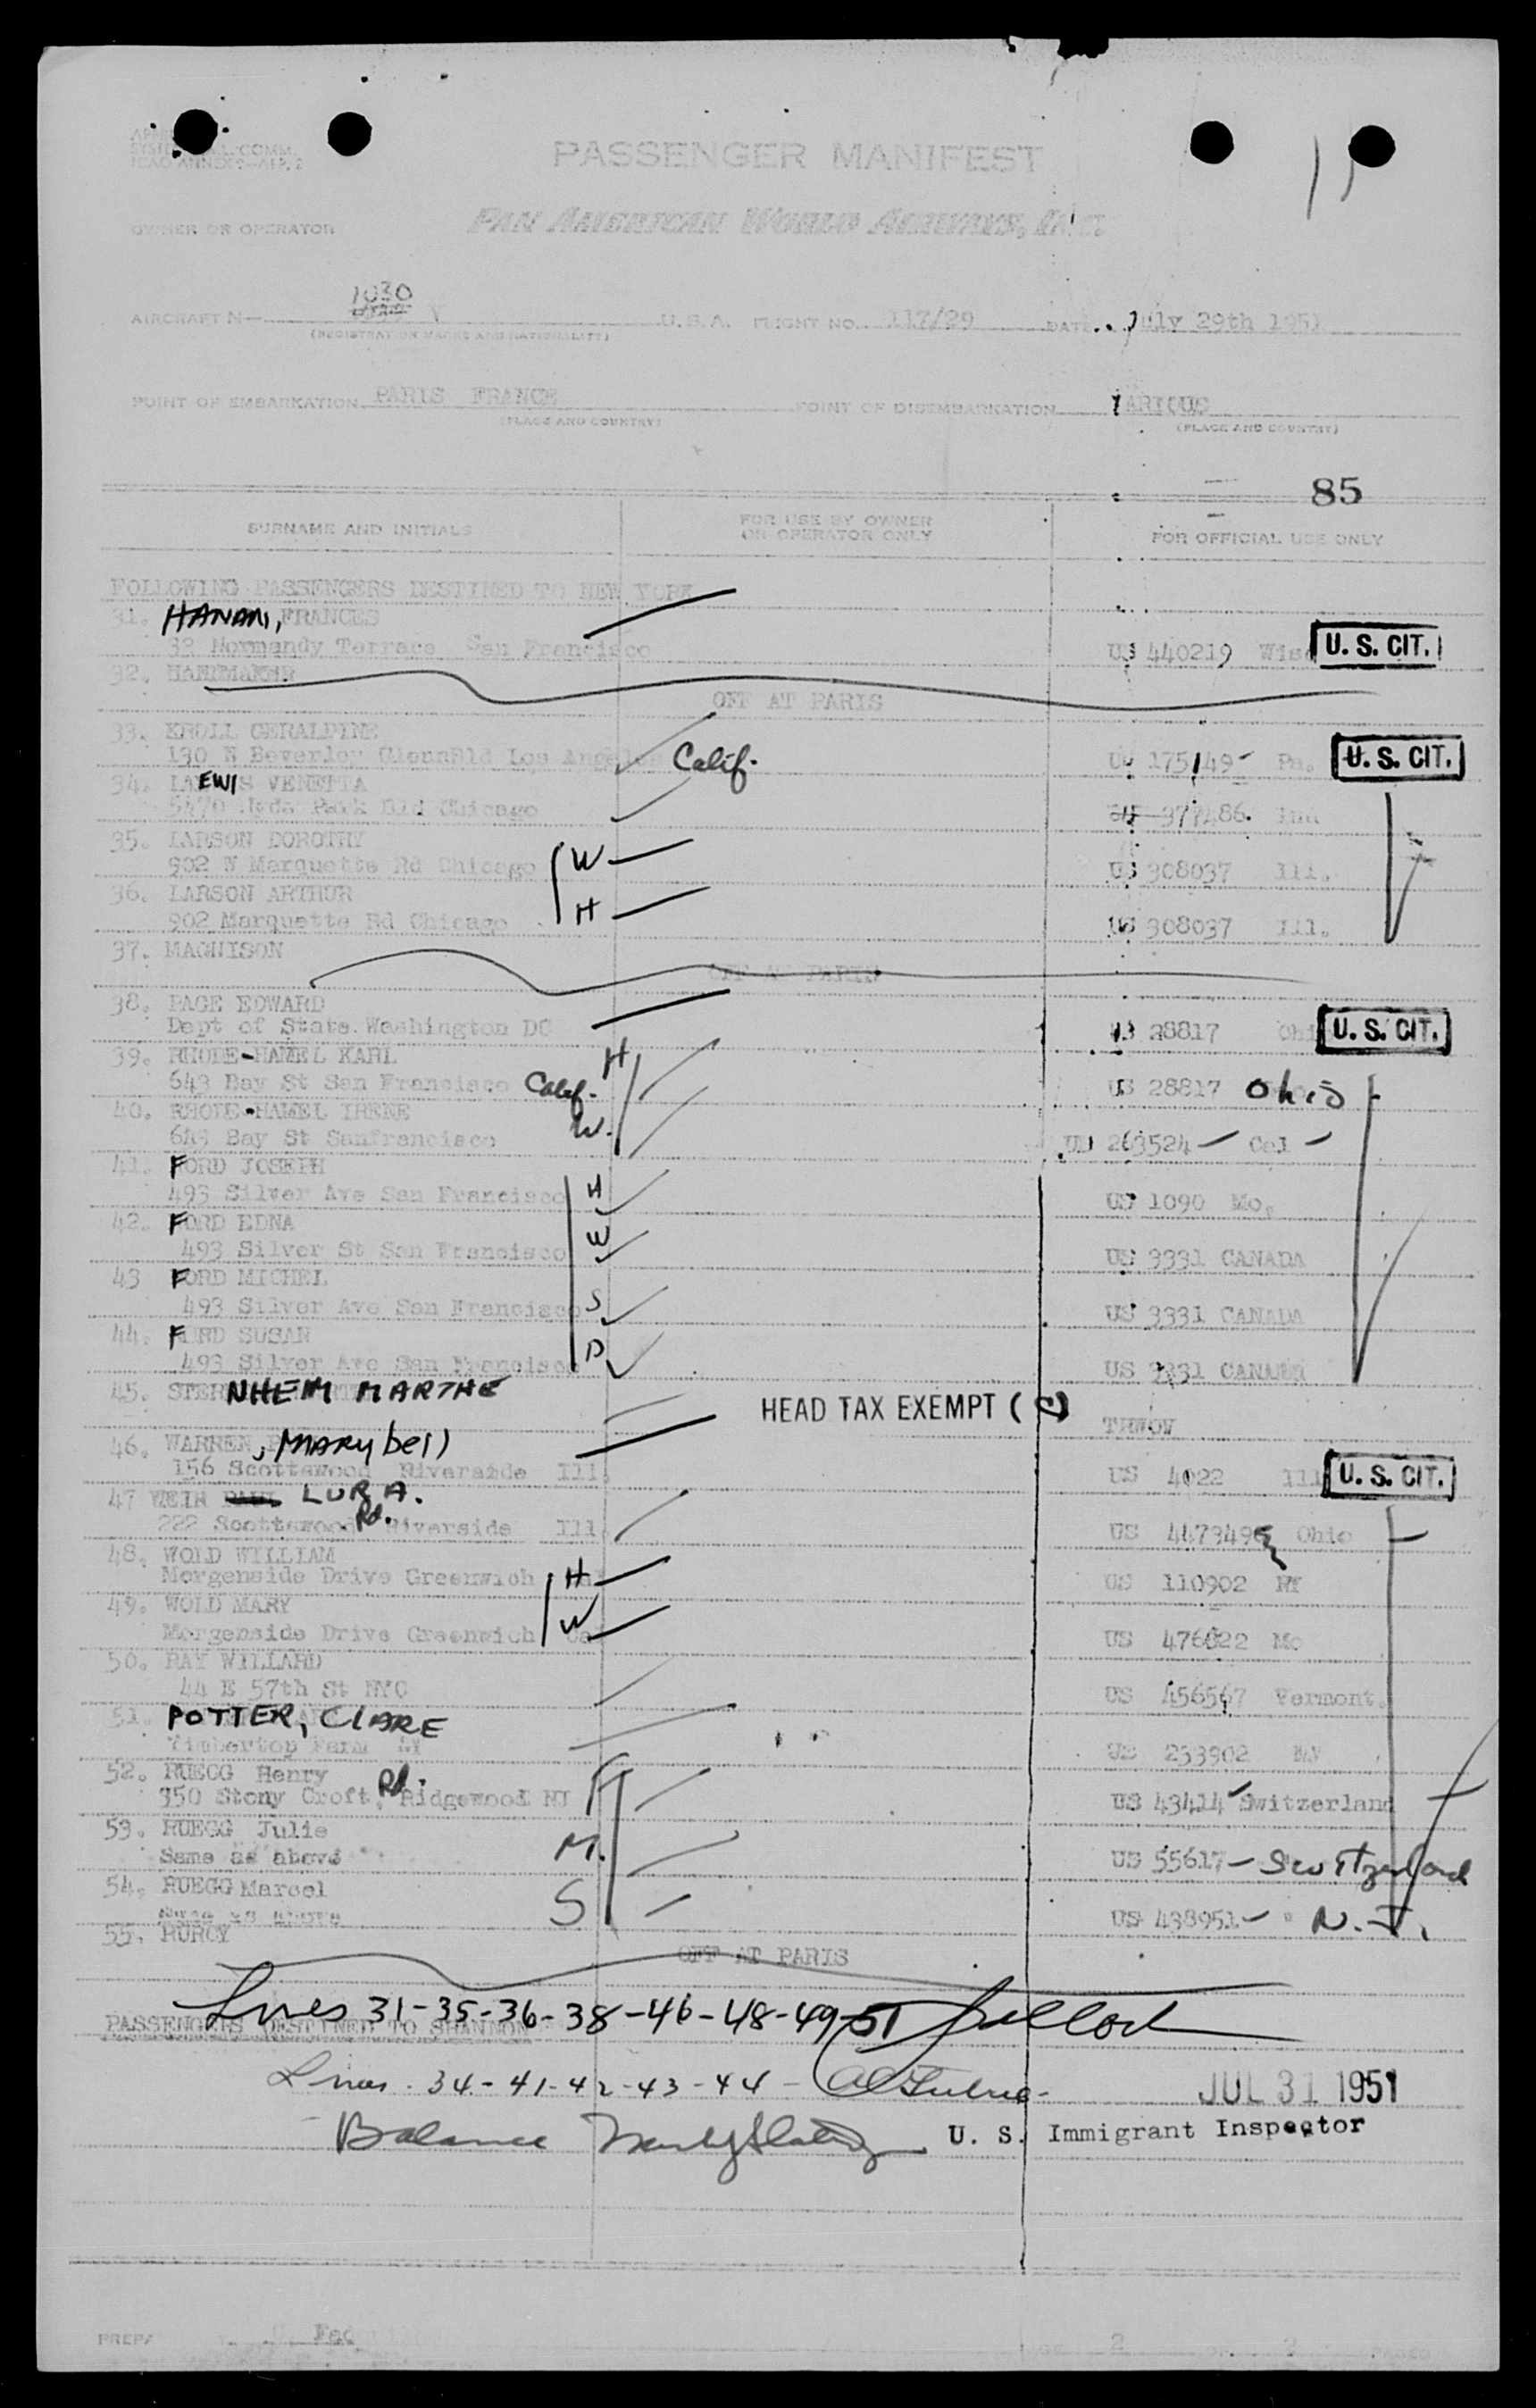 PASSENGER MANIFEST
OWNER OR OPERATOR PAN AMERICAN WORLD AIRWAYS, INC.
1030
AIRCRAFT N— U.S.A. FLIGHT NO. 117/29 DATE July 29th 1951
(REGISTRATION MARKS AND NATIONALITY)
POINT OF EMBARKATION PARIS FRANCE POINT OF DISEMBARKATION VARIOUS
(PLACE AND COUNTRY) (PLACE AND COUNTRY)
85
SURNAME AND INITIALS FOR USE BY OWNER OR OPERATOR ONLY FOR OFFICIAL USE ONLY
FOLLOWING PASSENGERS DESTINED TO NEW YORK
31. HANAN, FRANCES
32 Normandy Terrace San Francisco US 440219 Wisc U. S. CIT.
32. HANDMAKER
OFF AT PARIS
33. KROLL GERALDINE
130 N Beverley Glen Bld Los Angeles Calif. US 175149 Pa. U. S. CIT.
34. LEWIS VENETTA
5470 Hyde Park Bld Chicago 377486. Ind
35. LARSON DOROTHY
902 W Marquette Rd Chicago W US 308037 Ill.
36. LARSON ARTHUR
902 Marquette Rd Chicago H US 308037 Ill.
37. MAGNISON
OFF AT PARIS
38. PAGE EDWARD
Dept of State Washington DC US 28817 Ohi U. S. CIT.
39. RHODE-HAMEL KARL H
643 Bay St San Francisco Calif. US 28817 Ohio
40. RHODE-HAMEL IRENE
643 Bay St Sanfrancisco W. US 263524 — Cal —
41. FORD JOSEPH
493 Silver Ave San Francisco H US 1090 Mo.
42. FORD EDNA
493 Silver St San Francisco W US 3331 CANADA
43 FORD MICHEL
493 Silver Ave San Francisco S US 3331 CANADA
44. FORD SUSAN
493 Silver Ave San Francisco D US 3331 CANADA
45. STERNHEIM MARTHE
HEAD TAX EXEMPT (C)
46. WARREN, MARYbell
156 Scottswood Riverside Ill. US 4022 Ill U. S. CIT.
47 WEIR LURA.
222 Scottswood Rd. Riverside Ill US Ohio
48. WOLD WILLIAM
Morgenside Drive Greenwich H US 110902 NY
49. WOLD MARY
Morgenside Drive Greenwich W US 476622 Mo
50. RAY WILLARD
44 E 57th St NYC US 456567 Vermont.
51. POTTER, CLARE
Timbertop Farm US 233902
52. RUEGG Henry
350 Stony Croft Rd. Ridgewood NJ US 43414 Switzerland
53. RUEGG Julie
Same as above M. US 55617 — Switzerland
54. RUEGG Marcel
Same as above S US 438951 — N. J.
55.
OFF AT PARIS
Lines 31-35-36-38-46-48-49-51
PASSENGERS DESTINED TO SHANNON
Lines - 34-41-42-43-44 -
JUL 31 1951
Balance
U. S. Immigrant Inspector
2